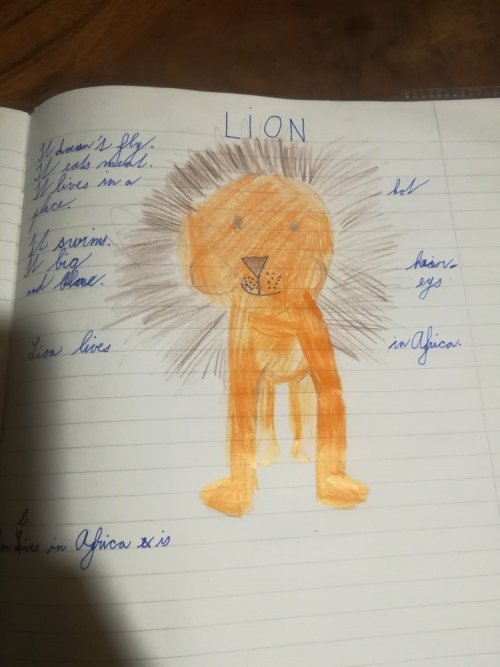 LION
It doesn't fly.
It eats meat.
It lives in a hot
place.
It swims.
It big
and blove.
eys
Lion lives in Africa.
l
lives in Africa is